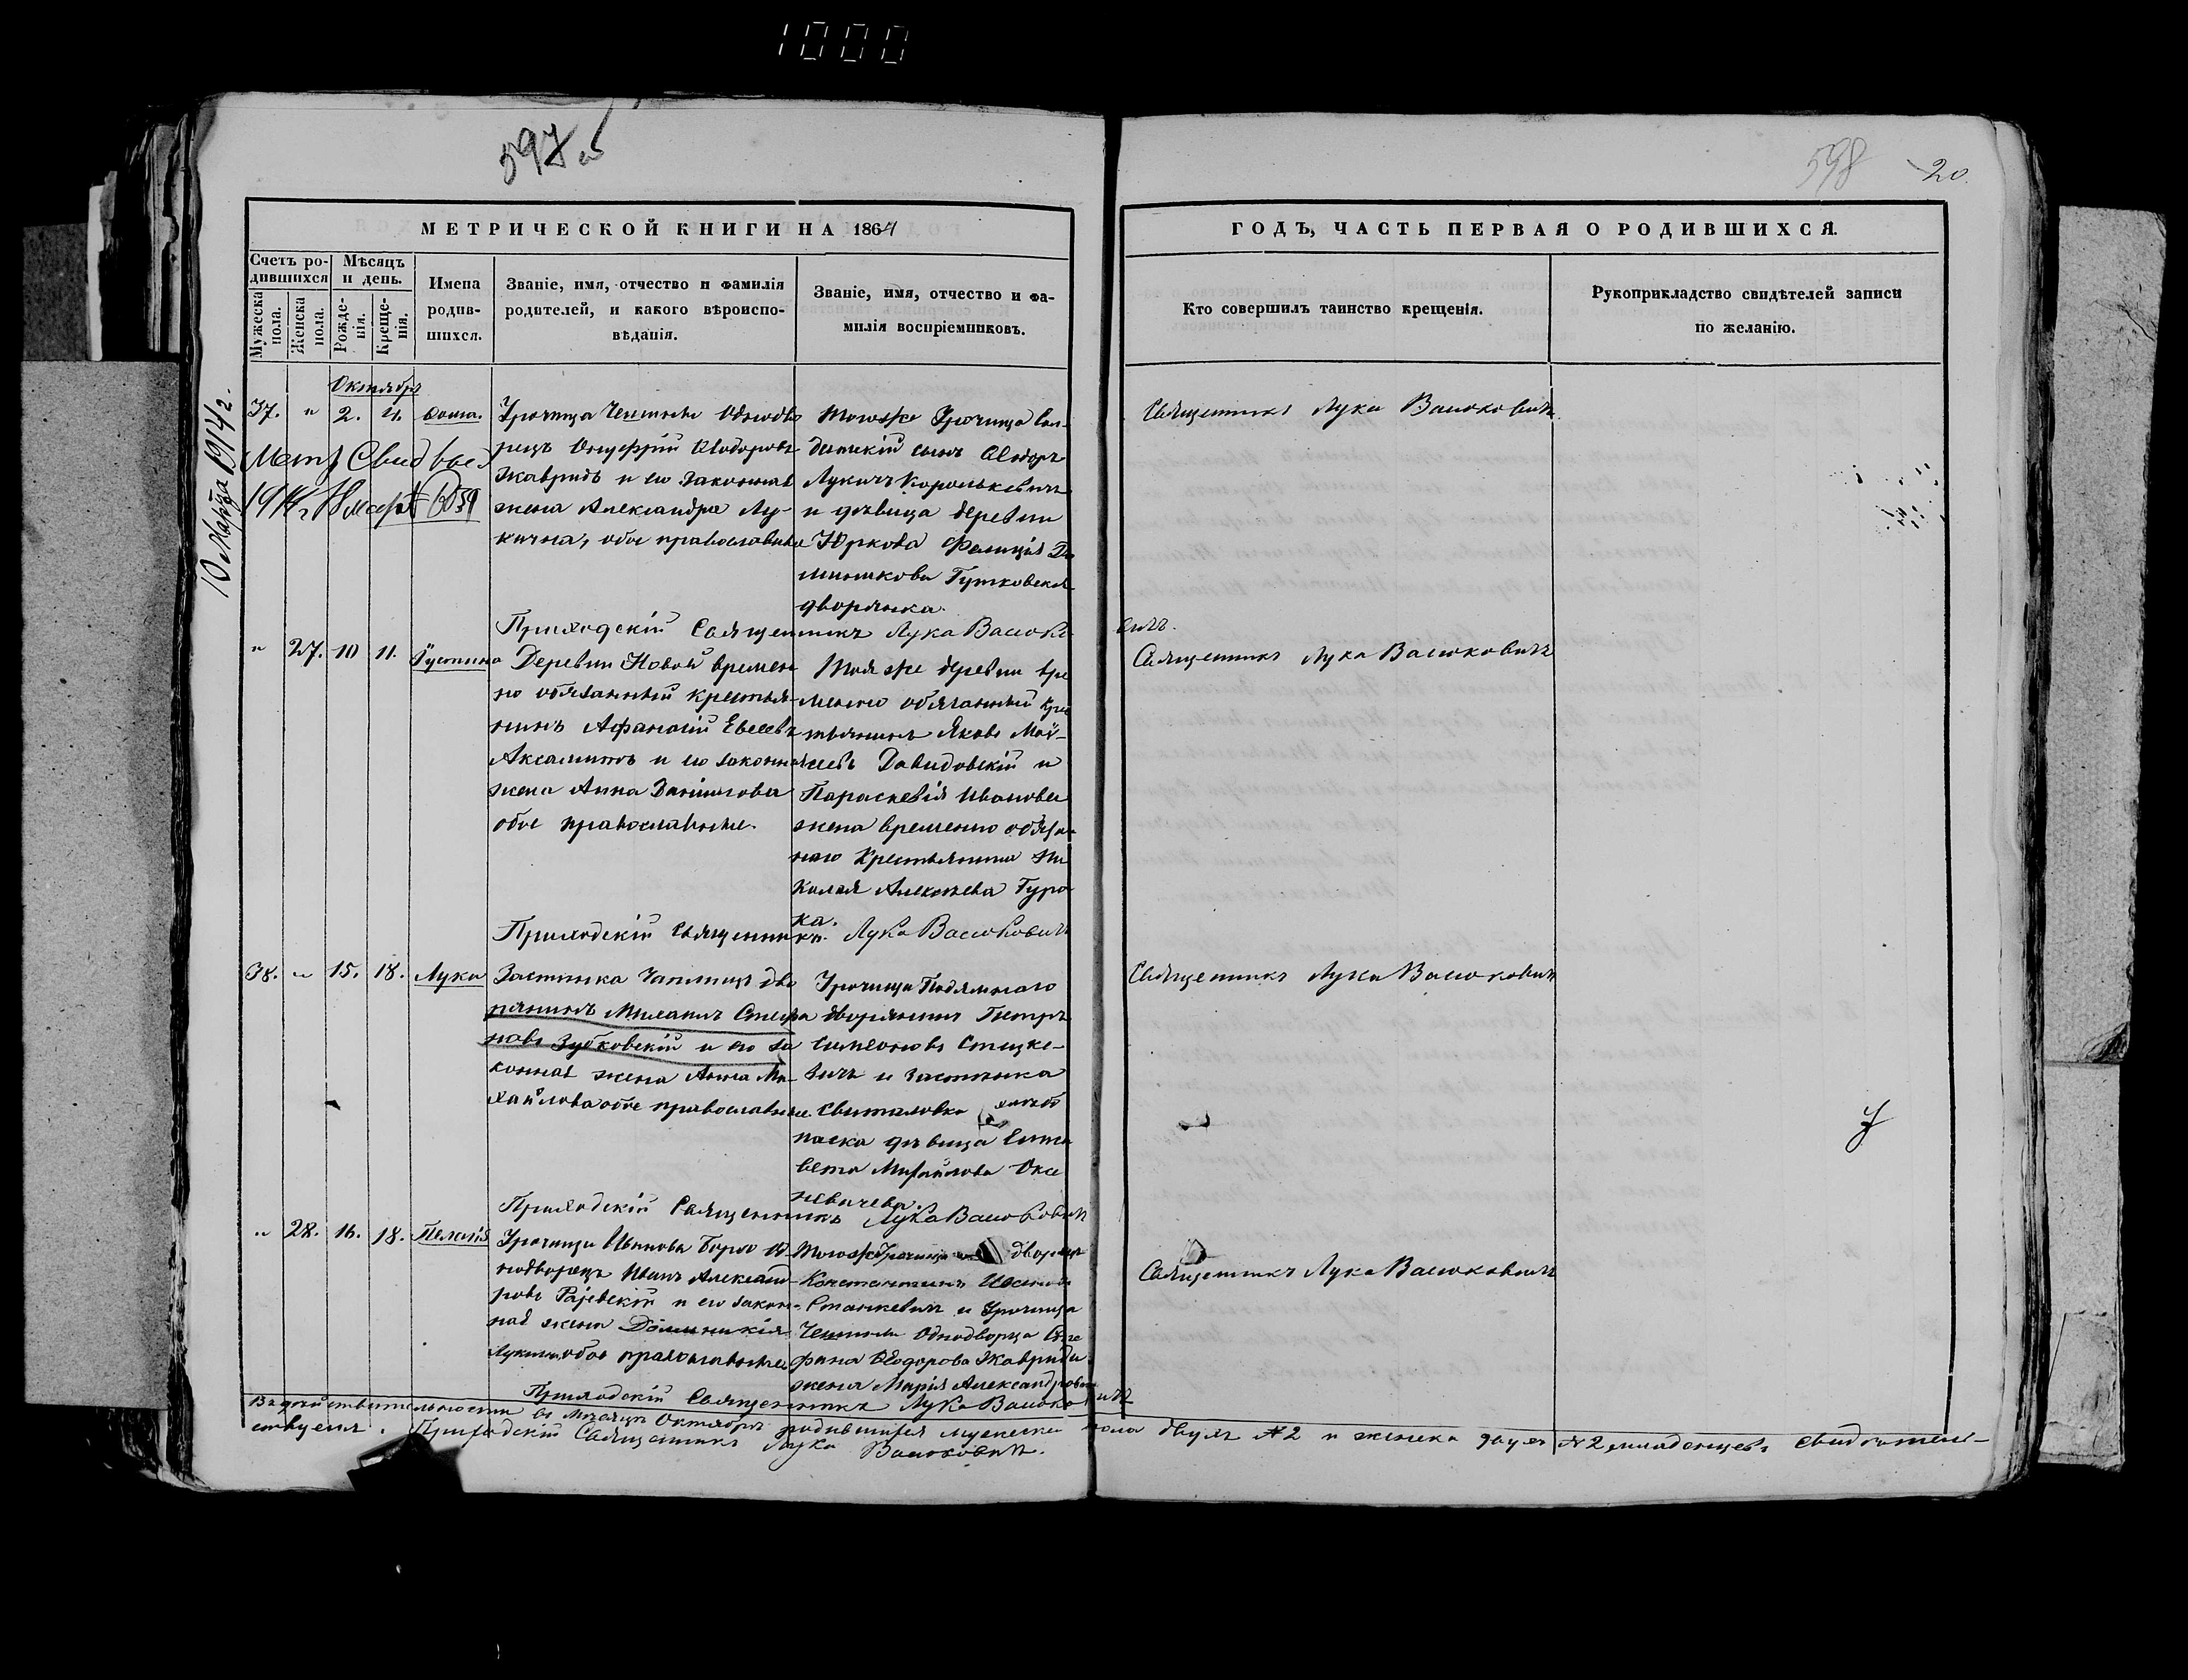 1000
597 об
598
20.
МЕТРИЧЕСКОЙ КНИГИ НА 1864
ГОДЪ, ЧАСТЬ ПЕРВАЯ О РОДИВШИХСЯ.
Счетъ ро-
дившихся
Мужеска пола.
Женска пола.
Мѣсяцъ
и день.
Рожде-
нія.
Креще-
нія.
Имена
родив-
шихся.
Званіе, имя, отчество и фамилія
родителей, и какого вѣроиспо-
вѣданія.
Званіе, имя, отчество и фа-
милія воспріемниковъ.
Кто совершилъ таинство крещенія.
Рукоприкладство свидѣтелей записи
по желанію.
10 Марта 1914 г.
Октябрь
37. " 2. 4. Ѳома.
Метр Свид выд
1914 г
Урочища Однодво
рецъ Онуфрій Ѳеодоровъ
Жавридъ и его законная
жена Александра Лу-
кична, обое православные
Тогоже Урочища
сынъ Ѳеодоръ
Лукичъ Королькевичъ
и дѣвица деревни
Юркова Фелиція До
миникова Гутковская
дворянка.
Священникъ Лука Васюковичъ
Приходскій Священникъ Лука Васюко-
вичъ.
" 27. 10 11. Іустина
Деревни Новой времен
но обязанный крестья-
нинъ Афанасій Евсеевъ
Аксамитъ и его законная
жена Анна Даниілова
обое православные.
Тояже деревни вре
менно обязанный кре
стьянинъ Яковъ Мой-
сеевъ Давидовскій и
Параскевія Иванова
жена временно обяза-
наго Крестьянина Ни
колая Алексѣева Гуро
ка.
Священникъ Лука Васюковичъ
Приходскій Священникъ Лука Васюковичъ
38. " 15. 18. Лука
Застѣнка дво
рянинъ Стефа
новъ Зубковскій и его за
конная жена Анна Ми-
хайлова обое православные
Урочища
дворянинъ Петръ
Симеоновъ Стецке-
вичъ и Застѣнка
дѣвица Елиса
вета Михайлова
Священникъ Лука Васюковичъ
Приходскій Священникъ Лука Васюковичъ
" 28. 16. 18. Пелагія
Урочища Иванова Бора Од
нодворецъ Иванъ Александ-
ровъ Раевскій и его закон-
ная жена Доминикія
Лукина, обое православные
Тогоже Урочища дворянинъ
Константинъ
Станкевичъ и Урочища
Однодворца
Ѳеодорова Жаврида
жена Марія Александрова
Священникъ Лука Васюковичъ
Приходскій Священникъ Лука Васюковичъ
Въ дѣйствительности въ Мѣсяцѣ Октябрѣ родившихся мужеска пола двухъ №2 и женска двухъ №2, младенцевъ свидѣтель-
ствуемъ. Приходскій Священникъ Лука Васюковичъ.